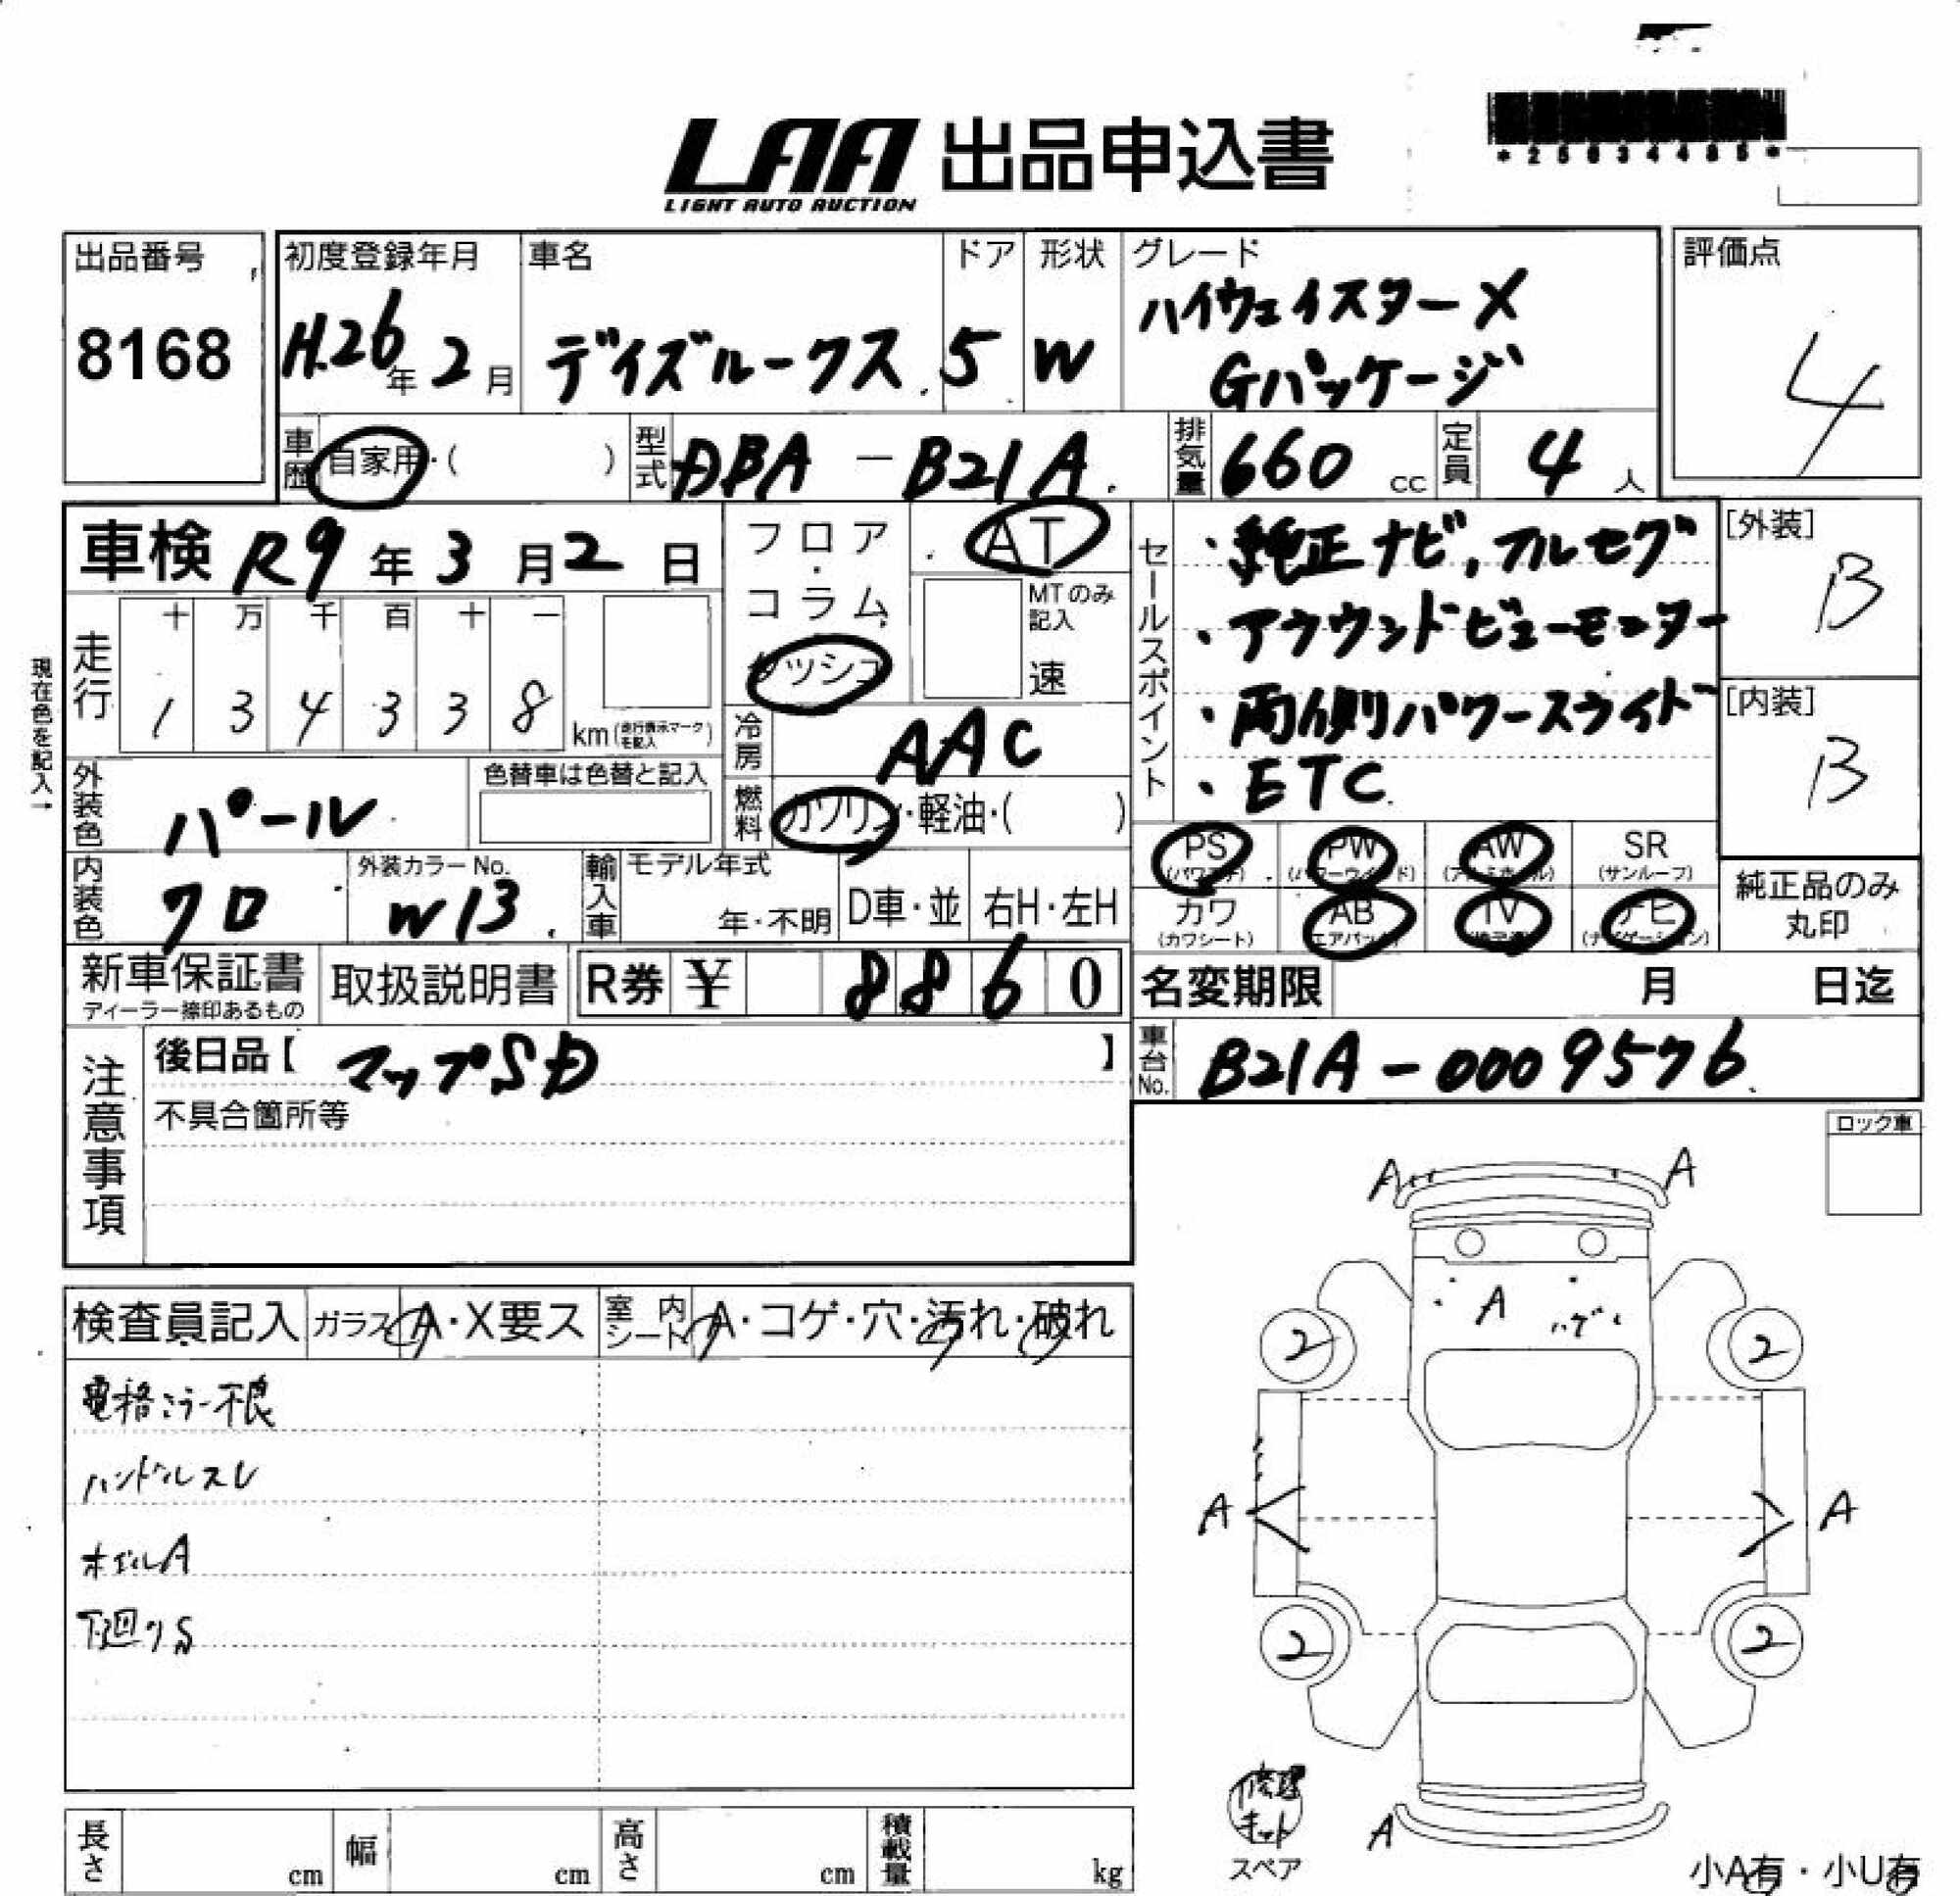 LAA 出品申込書
LIGHT AUTO AUCTION
*25034485*
出品番号
8168
初度登録年月
H.26年 2月
車名
デイズルークス
ドア
5
形状
W
グレード
ハイウェイスターX
Gパッケージ
評価点
4
車歴 自家用・( )
型式 DBA-B21A
排気量 660 cc
定員 4 人
車検 R9年 3月 2日
フロア・コラム
ダッシュ
AT
MTのみ記入
速
セールスポイント
・純正ナビ,フルセグ
・アラウンドビューモニター
・両側パワースライド
・ETC
[外装]
B
[内装]
B
現在色を記入→
走行
十 万 千 百 十 一
1 3 4 3 3 8
km(走行表示マークを記入)
冷房 AAC
燃料 ガソリン・軽油・( )
外装色 パール
色替車は色替と記入
内装色 クロ
外装カラーNo.
W13
輸入車
モデル年式
年・不明
D車・並
右H・左H
PS (パワステ)
PW (パワーウィンド)
AW (アルミホイル)
SR (サンルーフ)
カワ (カワシート)
AB (エアバック)
TV
ナビ (ナビゲーション)
純正品のみ丸印
新車保証書
ディーラー捺印あるもの
取扱説明書
R券 ¥ 8860
名変期限 月 日迄
車台No. B21A-0009576
注意事項
後日品【 マップSD 】
不具合箇所等
ロック車
検査員記入
ガラス A・X要ス
室内シート A・コゲ・穴・汚れ・破れ
電格ミラー不良
ハンドルスレ
ホイルA
下廻りS
A A
A
ハゲ
2 2
A A
2 2
A
修理キット
スペア
小A有・小U有
長さ cm
幅 cm
高さ cm
積載量 kg